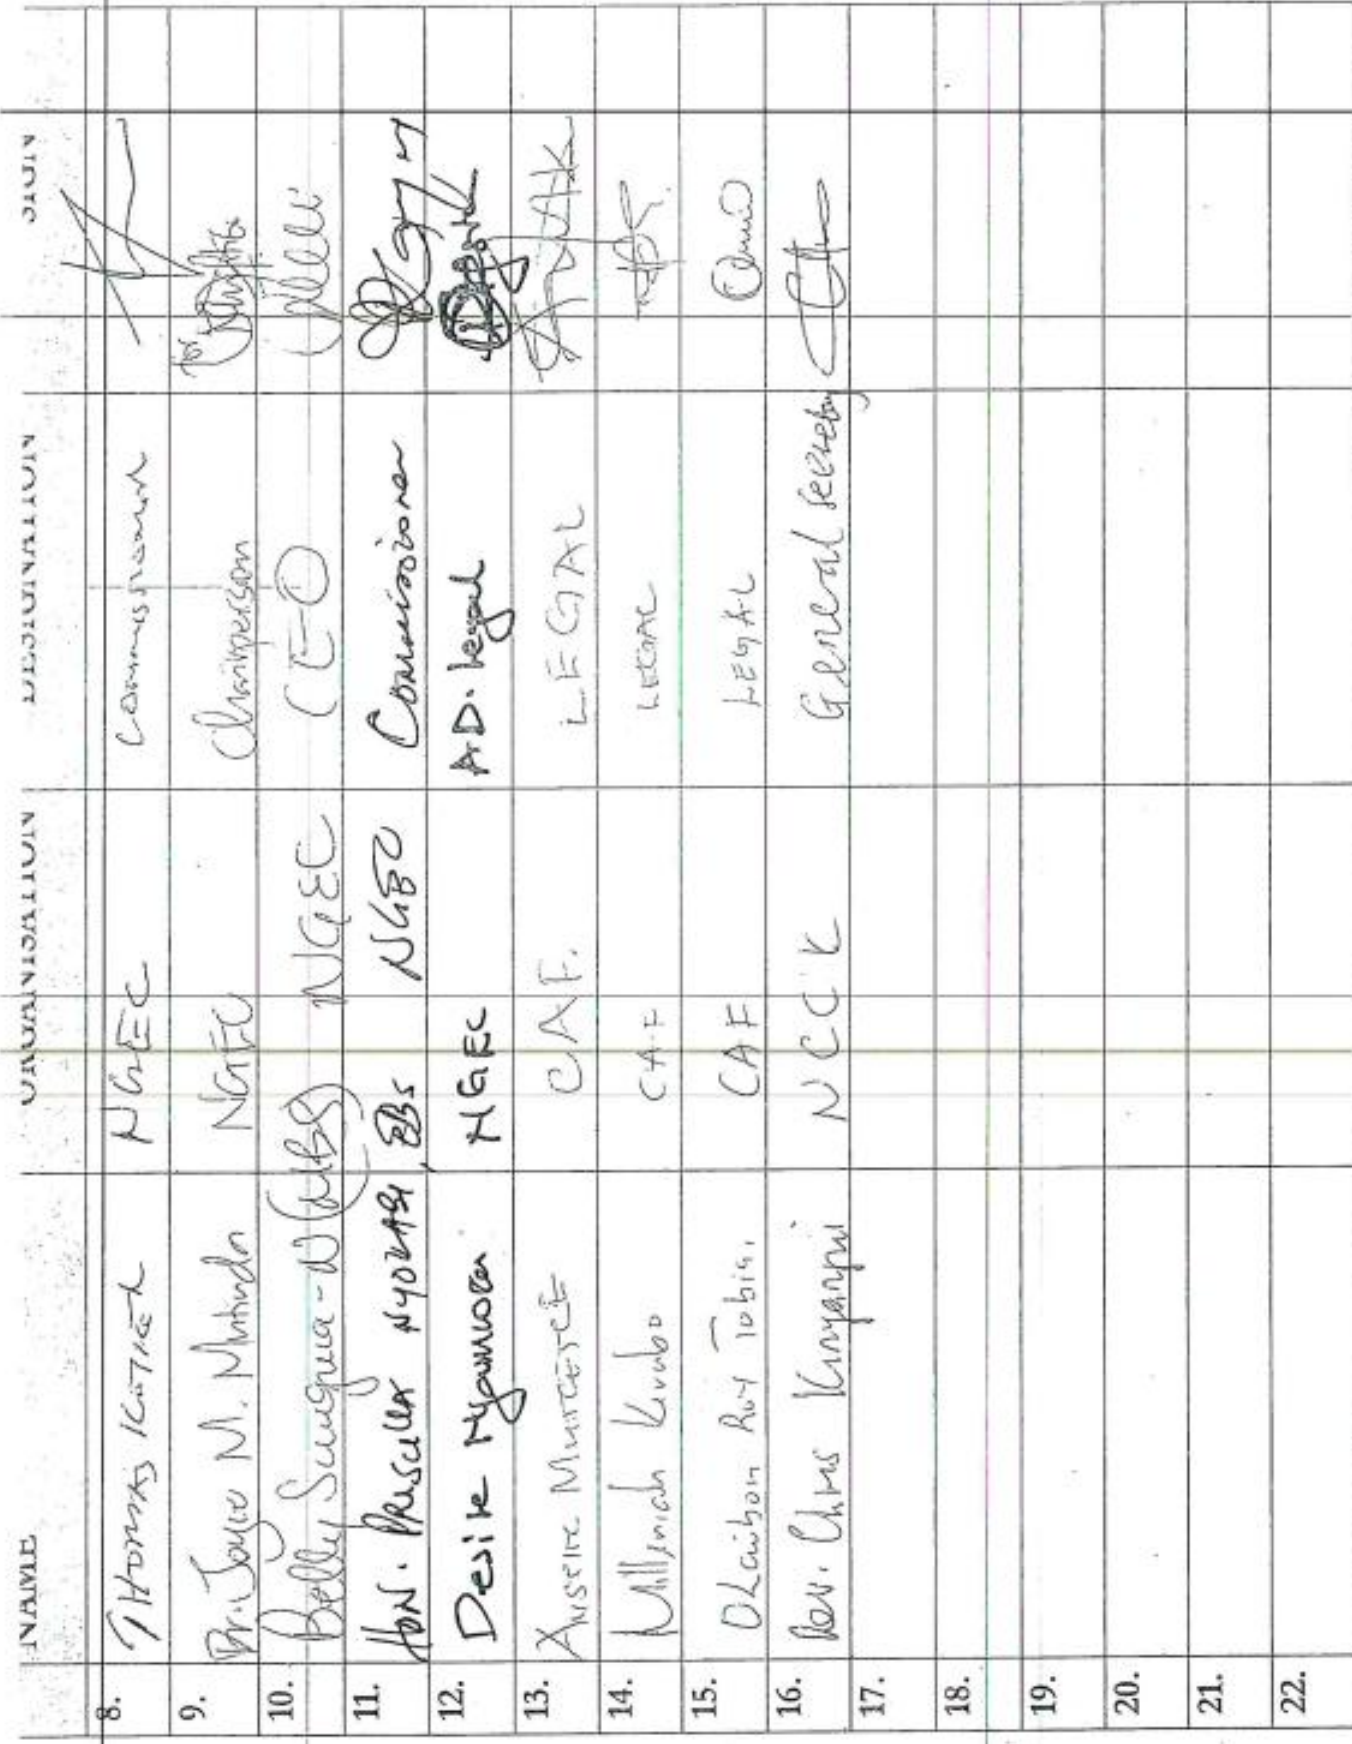 NAME ORGANISATION DESIGNATION SIGN
8. THOMAS KOTTRELL NGEC Commissioner
9. Dr. Joyce M. Mutinda NGEC Chairperson
10. Betty Sungura-N (MBS) NGEC CEO
11. HON. PRISCILLA NYOKABI, EBS NGEC Commissioner
12. Desire Njamwea NGEC AD. Legal
13. CAF. LEGAL
14. Millenich Kwabo CAF LEGAL
15. Olaibon Roy Tobin, CAF LEGAL
16. Rev. Chris Kinyanjui NCCK General Secretary
17.
18.
19.
20.
21.
22.